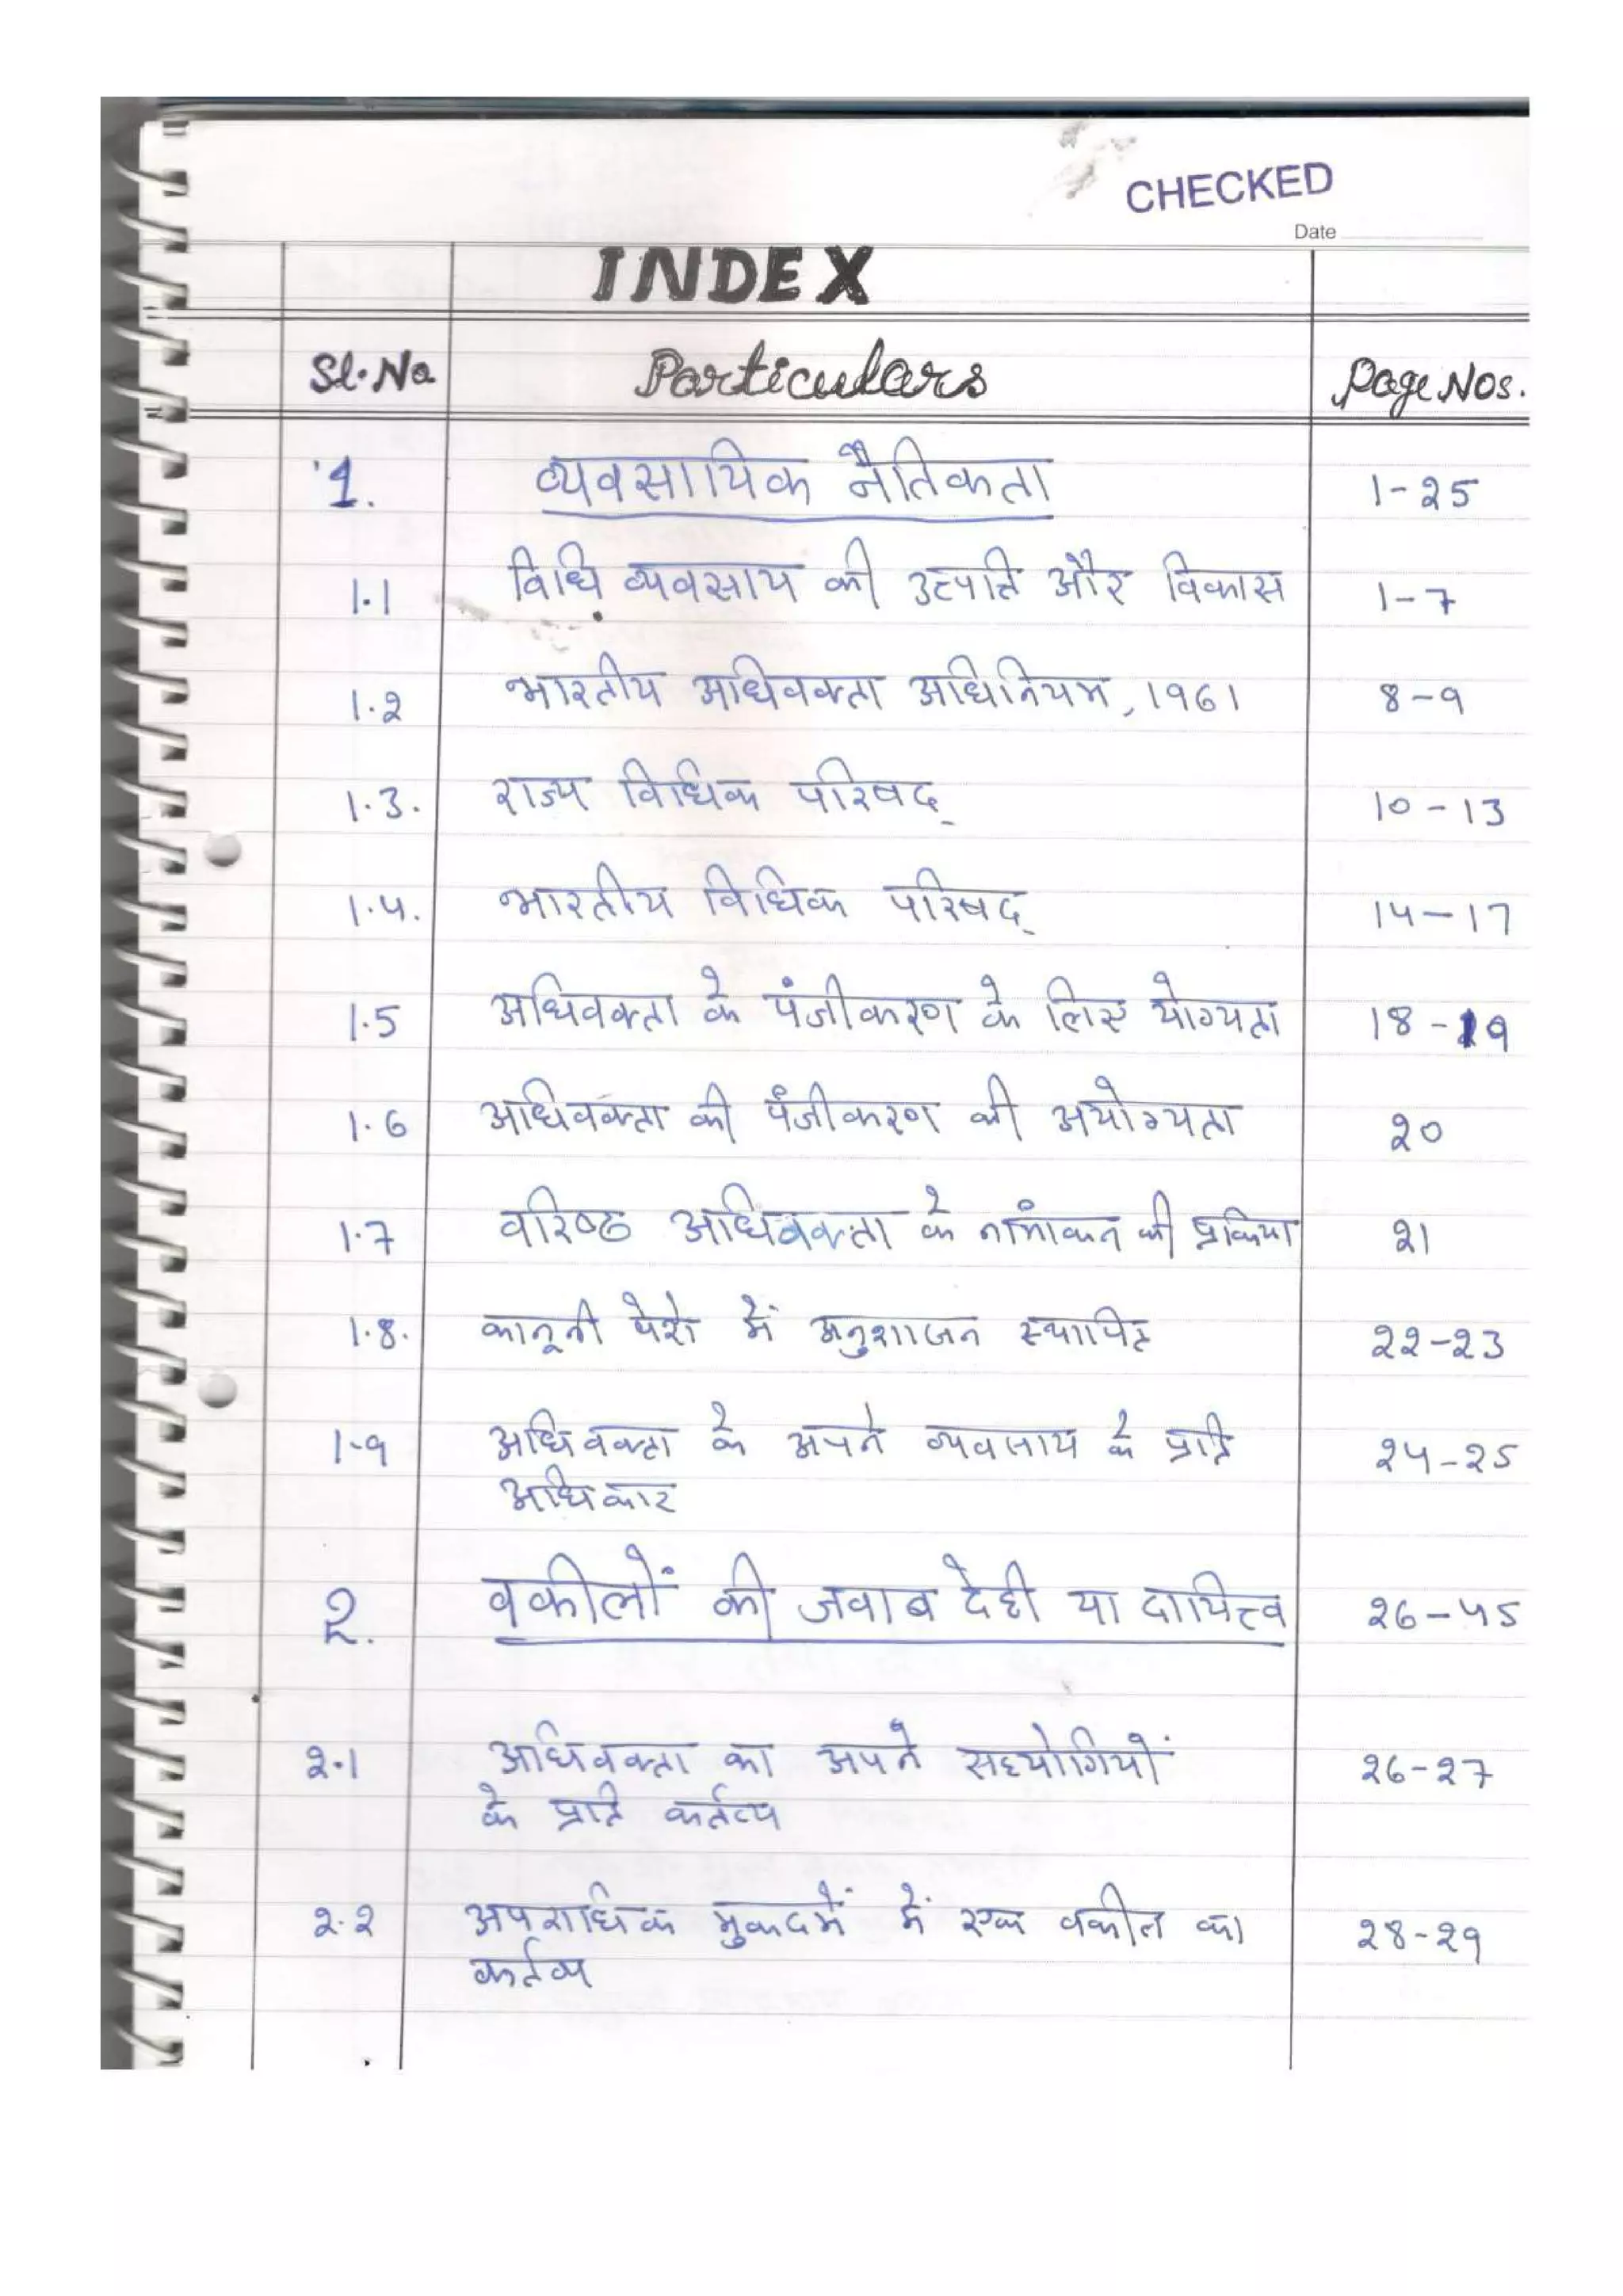 CHECKED
Date
INDEX
Sl.No Particulars Page Nos.
1. व्यवसायिक नैतिकता 1-25
1.1 विधि व्यवसाय की उत्पत्ति और विकास 1-7
1.2 भारतीय अधिवक्ता अधिनियम, 1961 8-9
1.3. राज्य विधिक परिषद् 10-13
1.4. भारतीय विधिक परिषद् 14-17
1.5 अधिवक्ता के पंजीकरण के लिए योग्यता 18-19
1.6 अधिवक्ता की पंजीकरण की अयोग्यता 20
1.7 वरिष्ठ अधिवक्ता के नामांकन की प्रक्रिया 21
1.8. कानूनी पेशे में अनुशासन स्थापित 22-23
1.9 अधिवक्ता के अपने व्यवसाय के प्रति 24-25
अधिकार
2. वकीलों की जवाब देही या दायित्त्व 26-45
2.1 अधिवक्ता का अपने सहयोगियों 26-27
के प्रति कर्तव्य
2.2 अपराधिक मुकदमें में एक वकील का 28-29
कर्तव्य